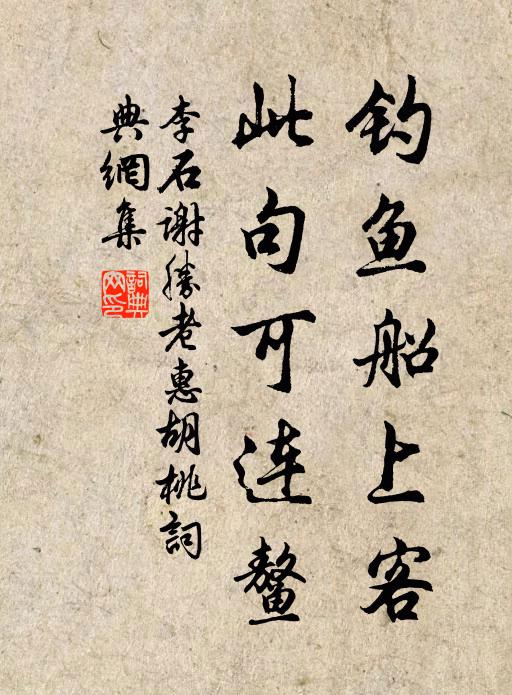 钓鱼船上客
此句可连鳌
李石谢胜老惠胡桃詞
典網集
詞典網印